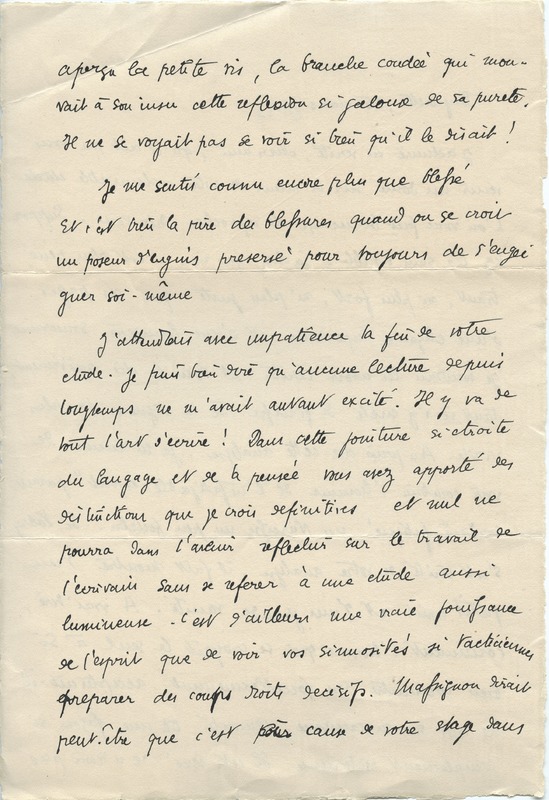 aperçu la petite vis, la branche coudée qui mou-
vait à son insu cette reflexion si jalouse de sa pureté.
Il ne se voyait pas se voir si bien qu'il le disait !
Je me sentis connu encore plus que blessé
Et c'est bien la pire des blessures quand on se croit
un poseur d'enguis preservé pour toujours de s'engui
guer soi-même
J'attendais avec impatience la fin de votre
etude. Je puis bien dire qu'aucune lecture depuis
longtemps ne m'avait autant excité. Il y va de
tout l'art d'écrire ! Dans cette jointure si etroite
du langage et de la pensée vous avez apporté des
distinctions que je crois definitives et nul ne
pourra dans l'avenir reflechir sur le travail de
l'ecrivain sans se referer à une etude aussi
lumineuse. C'est d'ailleurs une vraie jouissance
de l'esprit que de voir vos sinuosités si tacticiennes
preparer des coups droits decisifs. Massignon dirait
peut-être que c'est cause de votre stage dans